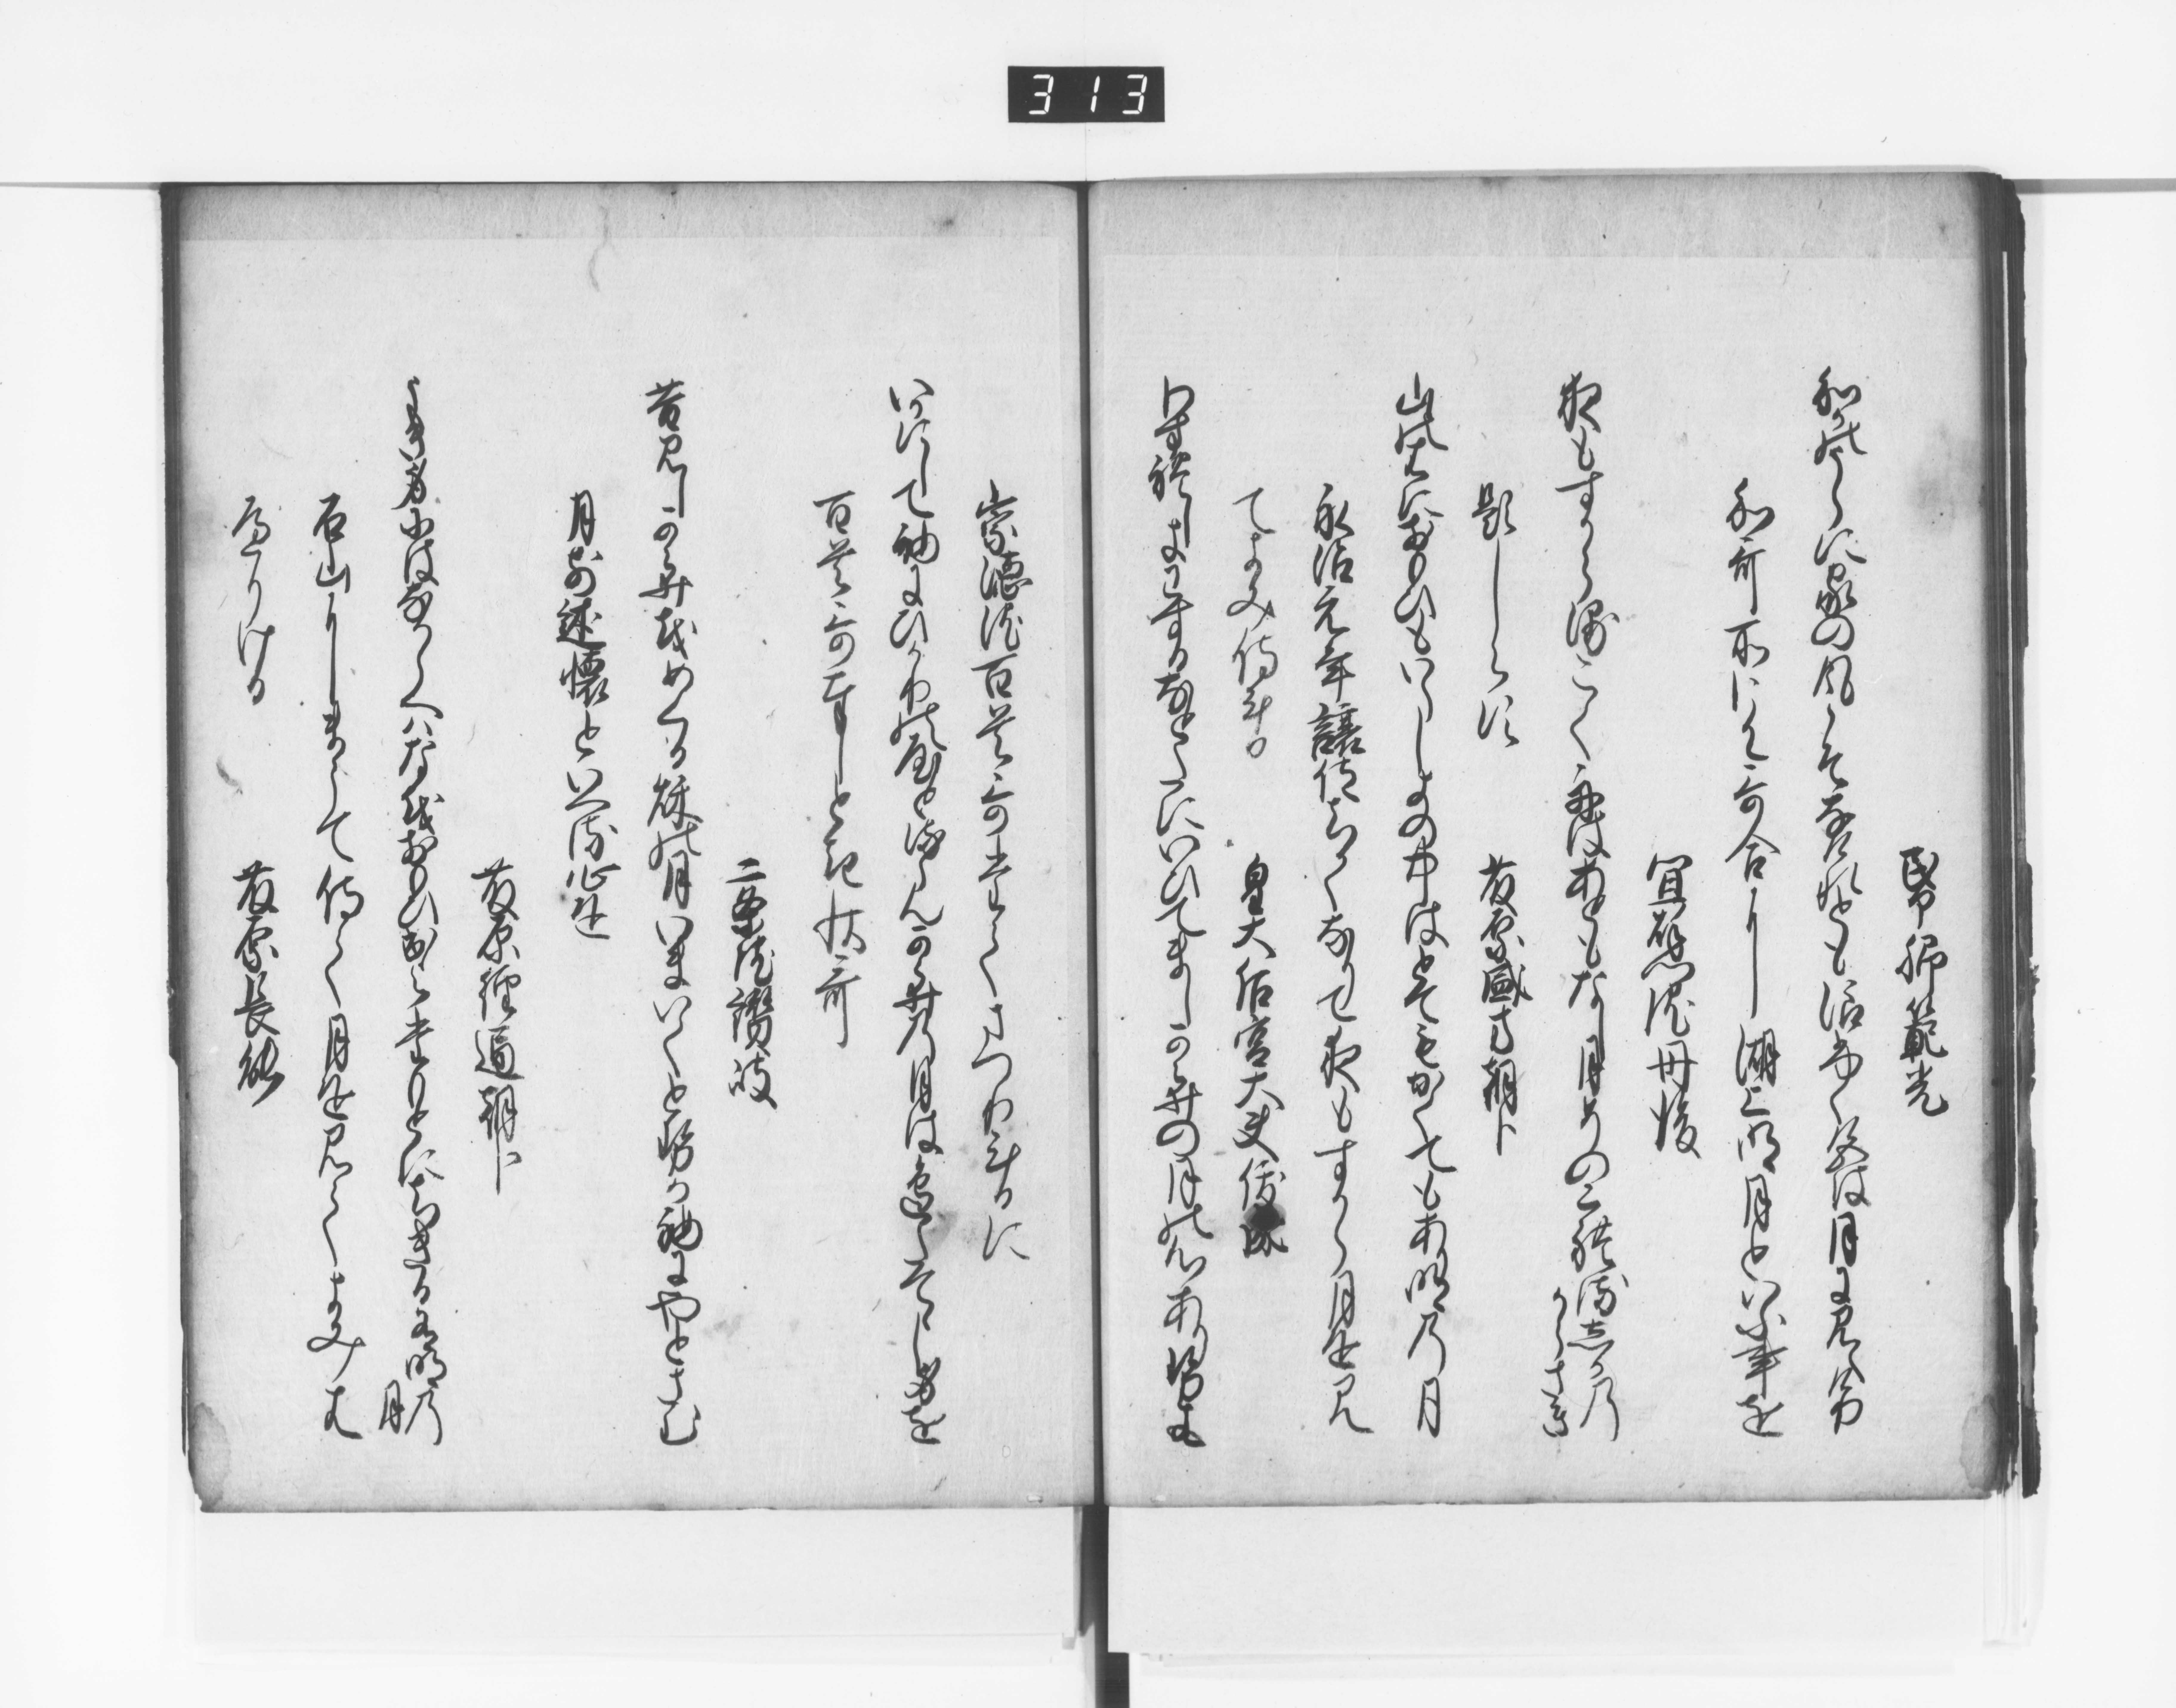 313
民部卿範光
和哥の浦に家の風こそなけれとも浪ふく色は月に見えけり
和哥所にて哥合に湖上月明といふ事を
宜秋門院丹後
夜もすから浦こく舟はあともなし月そのこれる志かのからさき
題しらす　藤原盛方朝臣
山のはにおもひもいらしよの中はとてもかくてもあり明の月
永治元年譲位ちかくなりて夜もすから月を見
てよみ侍ける　皇太后宮大夫俊成
わすれしよわするなとたにいひてまし雲井の月の心ありせは
崇徳院百首哥たてまつりけるに
いかにして袖にひかりのやとるらん雲井の月はへたてこし身を
百首哥
二条院讃岐
昔見し雲井をめくる秋の月いまいくとせか袖にやとさむ
月前述懐といへる心を
藤原経通朝臣
うき身よになからへはなをおもひいてよたもとにちきる有明の月
石山にまうて侍て月を見てよみ侍
ける
藤原長能